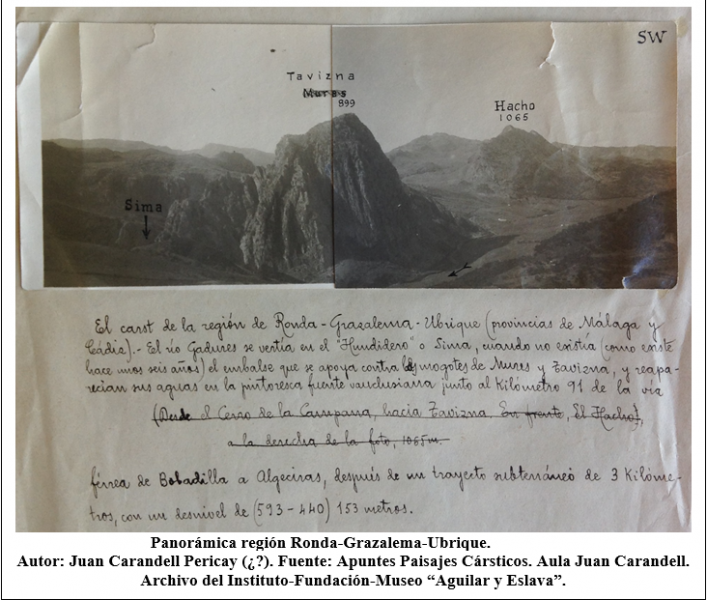 SW
Tavizna
Mures
899
Hacho
1065
Sima
El carst de la región de Ronda-Grazalema-Ubrique (provincias de Málaga y
Cádiz).- El río Gadures se vertía en el "Hundidero" o Sima, cuando no existía (como existe
hace unos seis años) el embalse que se apoya contra los mogotes de Mures y Tavizna, y reapa-
recían sus aguas en la pintoresca fuente vauclusiana junto al Kilómetro 91 de la vía
(Desde el Cerro de la Campana, hacia Tavizna. En frente, El Hacho),
a la derecha de la foto, 1065 m.
férrea de Bobadilla a Algeciras, después de un trayecto subterráneo de 3 Kilóme-
tros, con un desnivel de (593-440) 153 metros.
Panorámica región Ronda-Grazalema-Ubrique.
Autor: Juan Carandell Pericay (¿?). Fuente: Apuntes Paisajes Cársticos. Aula Juan Carandell.
Archivo del Instituto-Fundación-Museo “Aguilar y Eslava”.